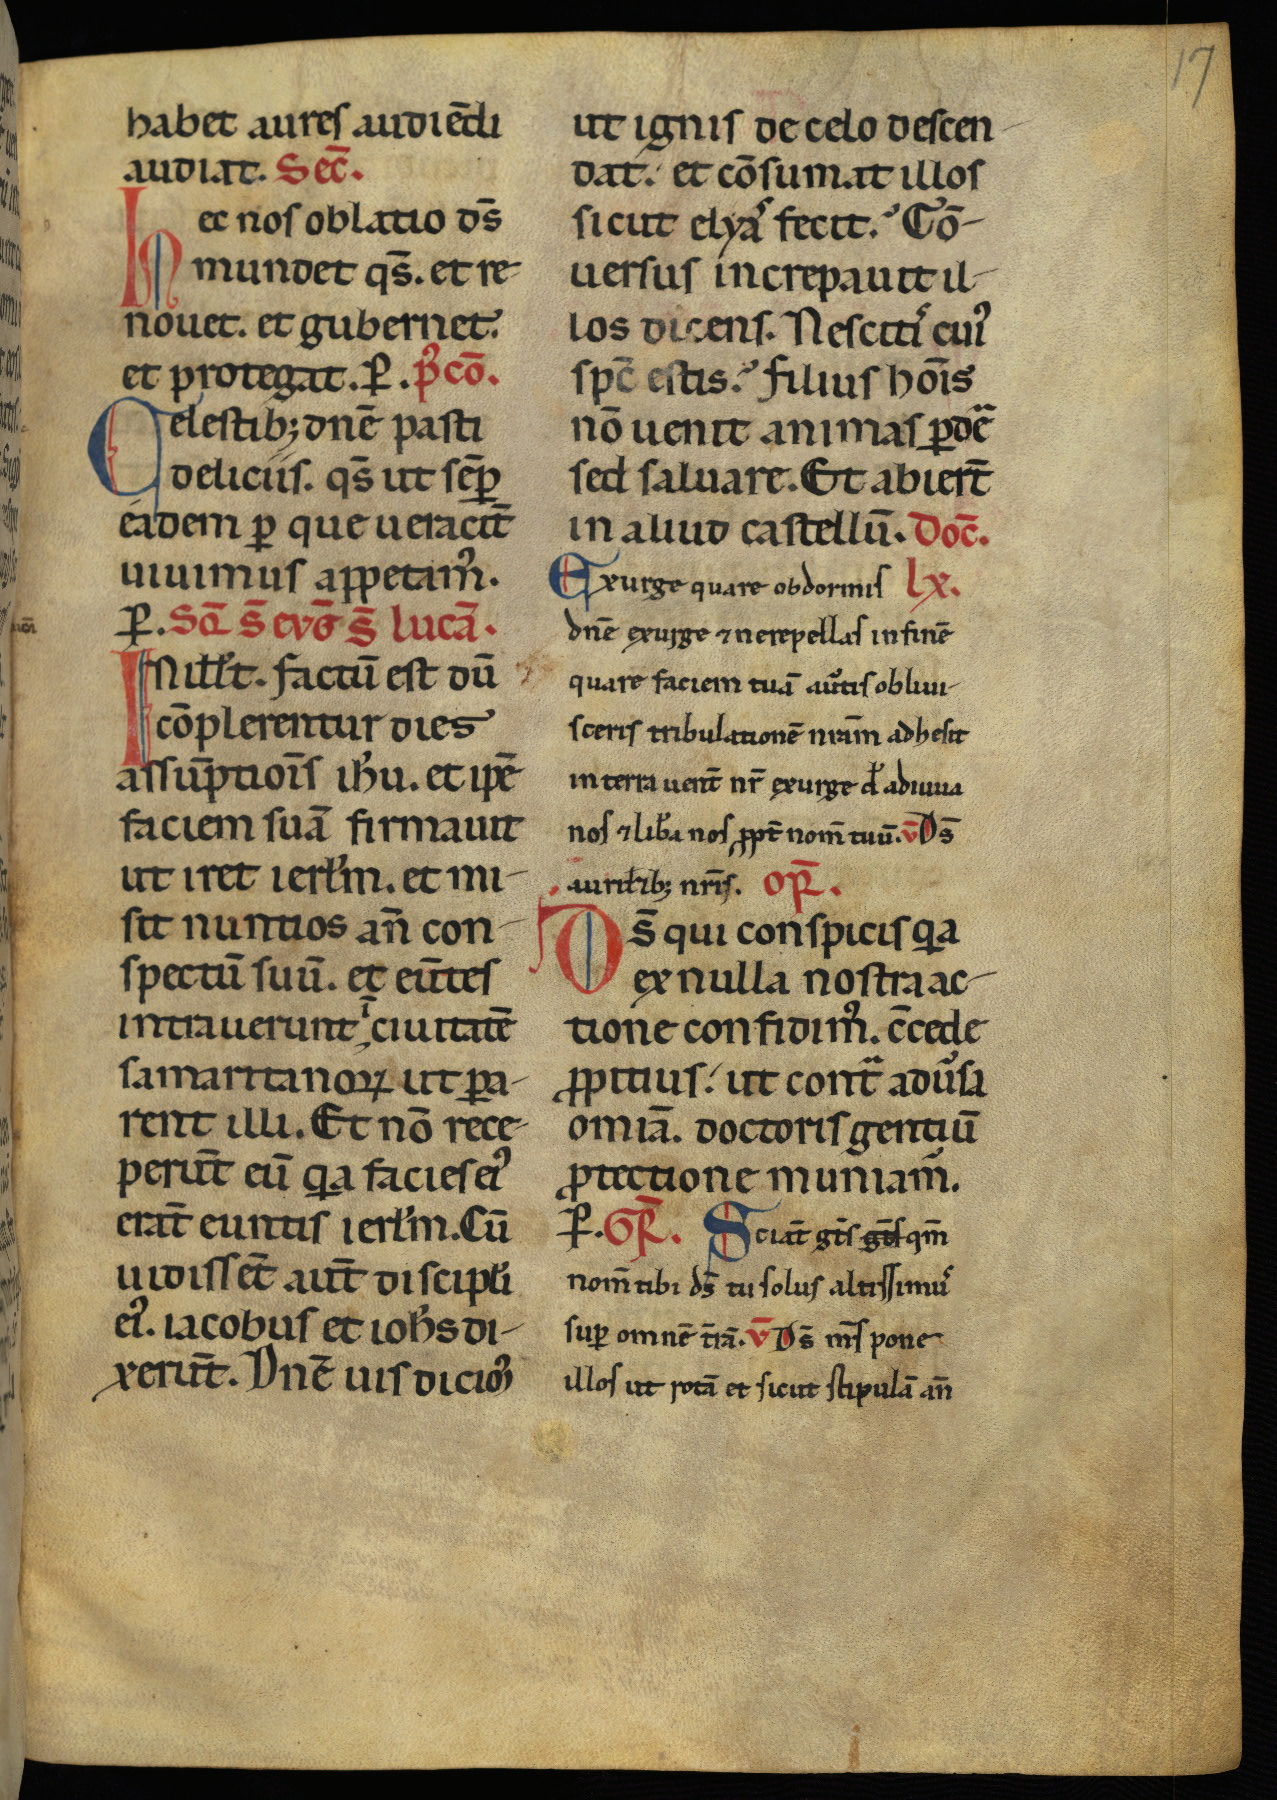 17
habet aures audiēdi
audiat. Sec̄.
hec nos oblatio ds̄
mundet qs̄. et re-
nouet. et gubernet.
et protegat. P. p̄ꝯcō.
Celestib; dn̄e pasti
deliciis. qs̄ ut sēꝑ
eadem ꝑ que ueracit̄
uiuimus appetam᷒.
P. Sā s̄ euḡ s̄ lucā.
INill̄t. factū est dū
cōplerentur dies
assūptiōis ih̄u. et ip̄e
faciem suā firmauit
ut iret ierl̄m. et mi-
sit nuntios an̄ con-
spectū suū. et eūtes
intrauerunt ī ciuitatē
samaritanoꝝ ut ꝑa-
rent illi. Et nō rece-
perūt eū qa facies ei᷒
erat̄ euntis ierl̄m. Cū
uidissēt aut̄ discipl̄i
ei᷒. iacobus et ioh̄s di-
xerūt. Dn̄e uis dicim᷒
ut ignis de celo descen-
dat. et cōsumat illos
sicut elyas fecit. Cō-
uersus increpauit il-
los dicens. Nescitis cui᷒
spc̄ estis. filius hoīs
nō uenit animas ꝑdē
sed saluare. Et abiert̄
in aliud castellū. Doc̄.
Exurge quare obdormis lx.
dn̄e exurge ⁊ ne repellas in finē
quare faciem tuā au᷒tis obliui-
sceris tribulationē nrām adhesit
in terra uent̄ nr̄ exurge d̄ adiuua
nos ⁊ lib̄a nos ꝓpt̄ nom̄ tuū. v̄ Ds̄
aurib; nrīs. or̄.
Ds̄ qui conspicis qa
ex nulla nostra ac-
tione confidim᷒. c̄cede
ꝓpitius. ut cont̄ adūsa
omīa. doctoris gentiū
ꝓtectione muniam᷒.
P. Gr̄. Sciat̄ gt̄s gt̄s qm̄
nom̄ tibi ds̄ tu solus altissimus
suꝑ omnē t̄rā. v̄ Ds̄ ms̄ pone
illos ut rotā et sicut stipulā an̄